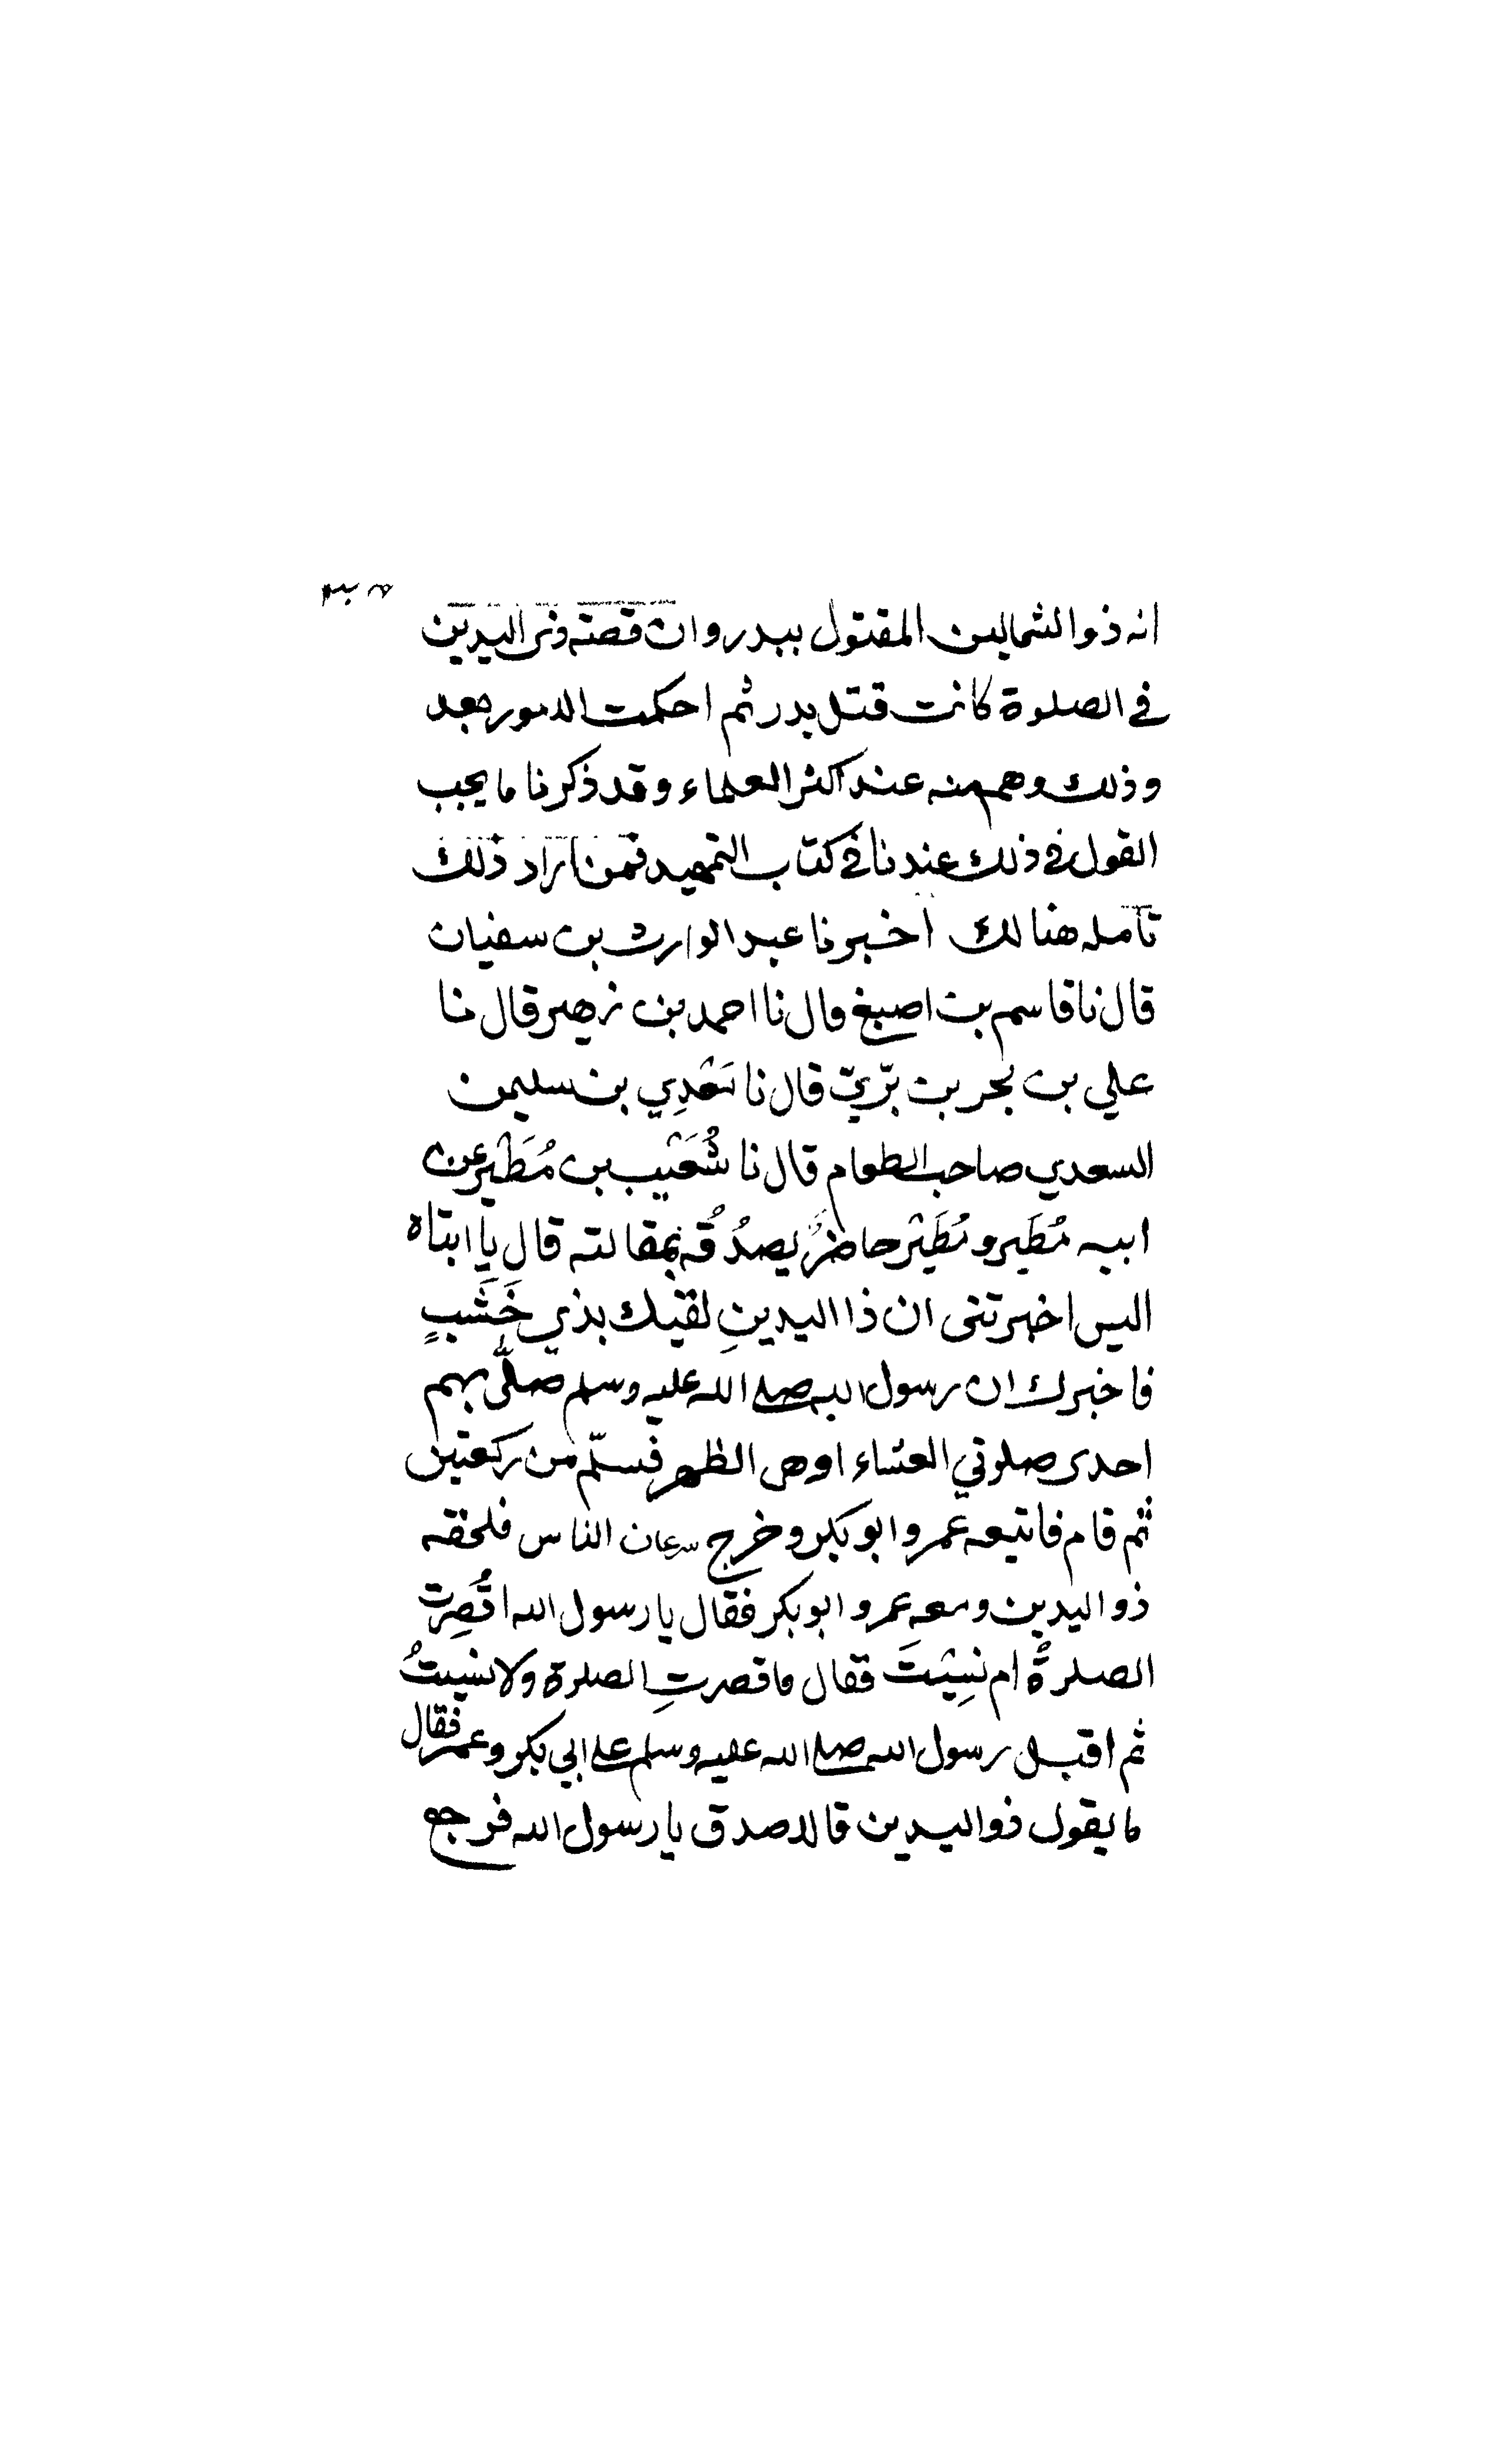 انه ذوا الشمالين المقتول ببدر وان قصته ذى اليدين
في الصلوة كانت قتل بدر ثم احكمت الامور بعد
وذلك وهم منه عند اكثر العلماء وقد ذكرنا ما يجب
القول في ذلك عندنا في كتاب التمهيد فمن اراد ذلك
تأمله هنالك اخبرنا عبد الوارث بن سفيان
قال نا قاسم بن اصبغ قال نا احمد بن زهير قال نا
علي بن بحر بن برّيّ قال نا مَعْدِي بن سليمن
السعدي صاحب الطعام قال نا شُعَيْب بن مُطَيْر عن
ابيه مُطَير ومُطَيْر حاضرٌ يصدُقُه بمقالته قال يا ابتاه
اليس اخبرتنى ان ذا اليدينِ لقيك بذي خَشَبٍ
فاخبرك ان رسول الله صلى الله عليه وسلم صلّى بهم
احدى صلوتي العشاء اوهى الظهر فسلّم من ركعتين
ثم قام فاتبعه عمر وابو بكر وخرج سرعان الناس فلحقه
ذو اليدين ومعه عمر وابو بكر فقال يا رسول الله اقُصِرت
الصلوةُ ام نسِيْتَ فقال ما قصرتِ الصلوة ولا نسيتُ
ثم اقبل رسول الله صلى الله عليه وسلم على ابي بكر وعمر فقال
ما يقول ذو اليدين قالا صدق يا رسول الله فرجع